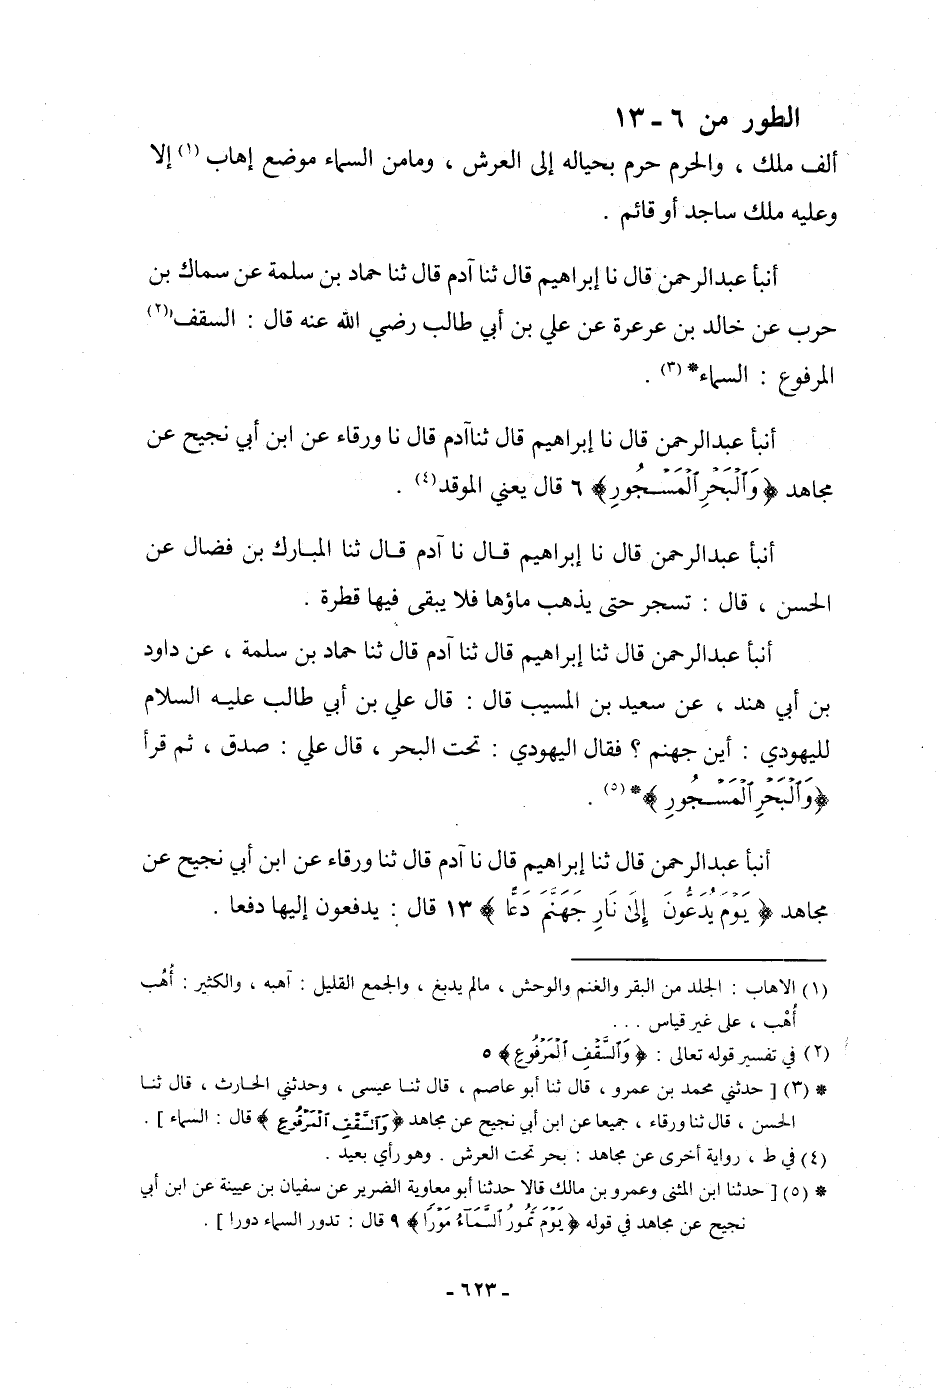 الطور من ٦ ـ ١٣
ألف ملك ، والحرم حرم بحياله إلى العرش ، ومامن السماء موضع إهاب (١) إلا
وعليه ملك ساجد أو قائم .
أنبأ عبدالرحمن قال نا إبراهيم قال ثنا آدم قال ثنا حماد بن سلمة عن سماك بن
حرب عن خالد بن عرعرة عن علي بن أبي طالب رضي الله عنه قال : السقف (٢)
المرفوع : السماء* (٣) .
أنبأ عبدالرحمن قال نا إبراهيم قال ثناآدم قال نا ورقاء عن ابن أبي نجيح عن
مجاهد ﴿ وَٱلْبَحْرِ ٱلْمَسْجُورِ ﴾ ٦ قال يعني الموقد (٤) .
أنبأ عبدالرحمن قال نا إبراهيم قال نا آدم قال ثنا المبارك بن فضال عن
الحسن ، قال : تسجر حتى يذهب ماؤها فلا يبقى فيها قطرة .
أنبأ عبدالرحمن قال ثنا إبراهيم قال ثنا آدم قال ثنا حماد بن سلمة ، عن داود
بن أبي هند ، عن سعيد بن المسيب قال : قال علي بن أبي طالب عليه السلام
لليهودي : أين جهنم ؟ فقال اليهودي : تحت البحر ، قال علي : صدق ، ثم قرأ
﴿ وَٱلْبَحْرِ ٱلْمَسْجُورِ ﴾* (٥) .
أنبأ عبدالرحمن قال ثنا إبراهيم قال نا آدم قال ثنا ورقاء عن ابن أبي نجيح عن
مجاهد ﴿ يَوْمَ يُدَعُّونَ إِلَىٰ نَارِ جَهَنَّمَ دَعًّا ﴾ ١٣ قال : يدفعون إليها دفعا .
(١) الاهاب : الجلد من البقر والغنم والوحش ، مالم يدبغ ، والجمع القليل : آهبه ، والكثير : أُهُب
أُهْب ، على غير قياس ...
(٢) في تفسير قوله تعالى : ﴿ وَٱلسَّقْفِ ٱلْمَرْفُوعِ ﴾ ٥
* (٣) [ حدثني محمد بن عمرو ، قال ثنا أبو عاصم ، قال ثنا عيسى ، وحدثني الحارث ، قال ثنا
الحسن ، قال ثنا ورقاء ، جميعا عن ابن أبي نجيح عن مجاهد ﴿ وَٱلسَّقْفِ ٱلْمَرْفُوعِ ﴾ قال : السماء ] .
(٤) في ط ، رواية أخرى عن مجاهد : بحر تحت العرش . وهو رأي بعيد .
* (٥) [ حدثنا ابن المثنى وعمرو بن مالك قالا حدثنا أبو معاوية الضرير عن سفيان بن عيينة عن ابن أبي
نجيح عن مجاهد في قوله ﴿ يَوْمَ تَمُورُ ٱلسَّمَآءُ مَوْرًا ﴾ ٩ قال : تدور السماء دورا ] .
ـ ٦٢٣ ـ